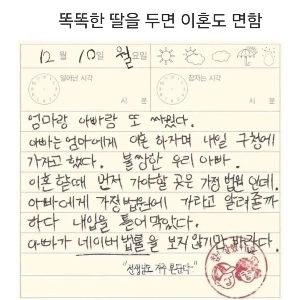 똑똑한 딸을 두면 이혼도 면함
12월 10일 월요일
일어난 시각 잠자는 시각
시 분 시 분
엄마랑 아빠랑 또 싸웠다.
아빠는 엄마에게 이혼 하자며 내일 구청에
가자고 했다. 불쌍한 우리 아빠.
이혼 할때 먼저 가야할 곳은 가정 법원 인데.
아빠에게 가정법원에 가라고 알려줄까
하다 내입을 틀어막았다.
아빠가 네이버법률을 보지않기만 바란다.
"선생님도 자주 본단다"